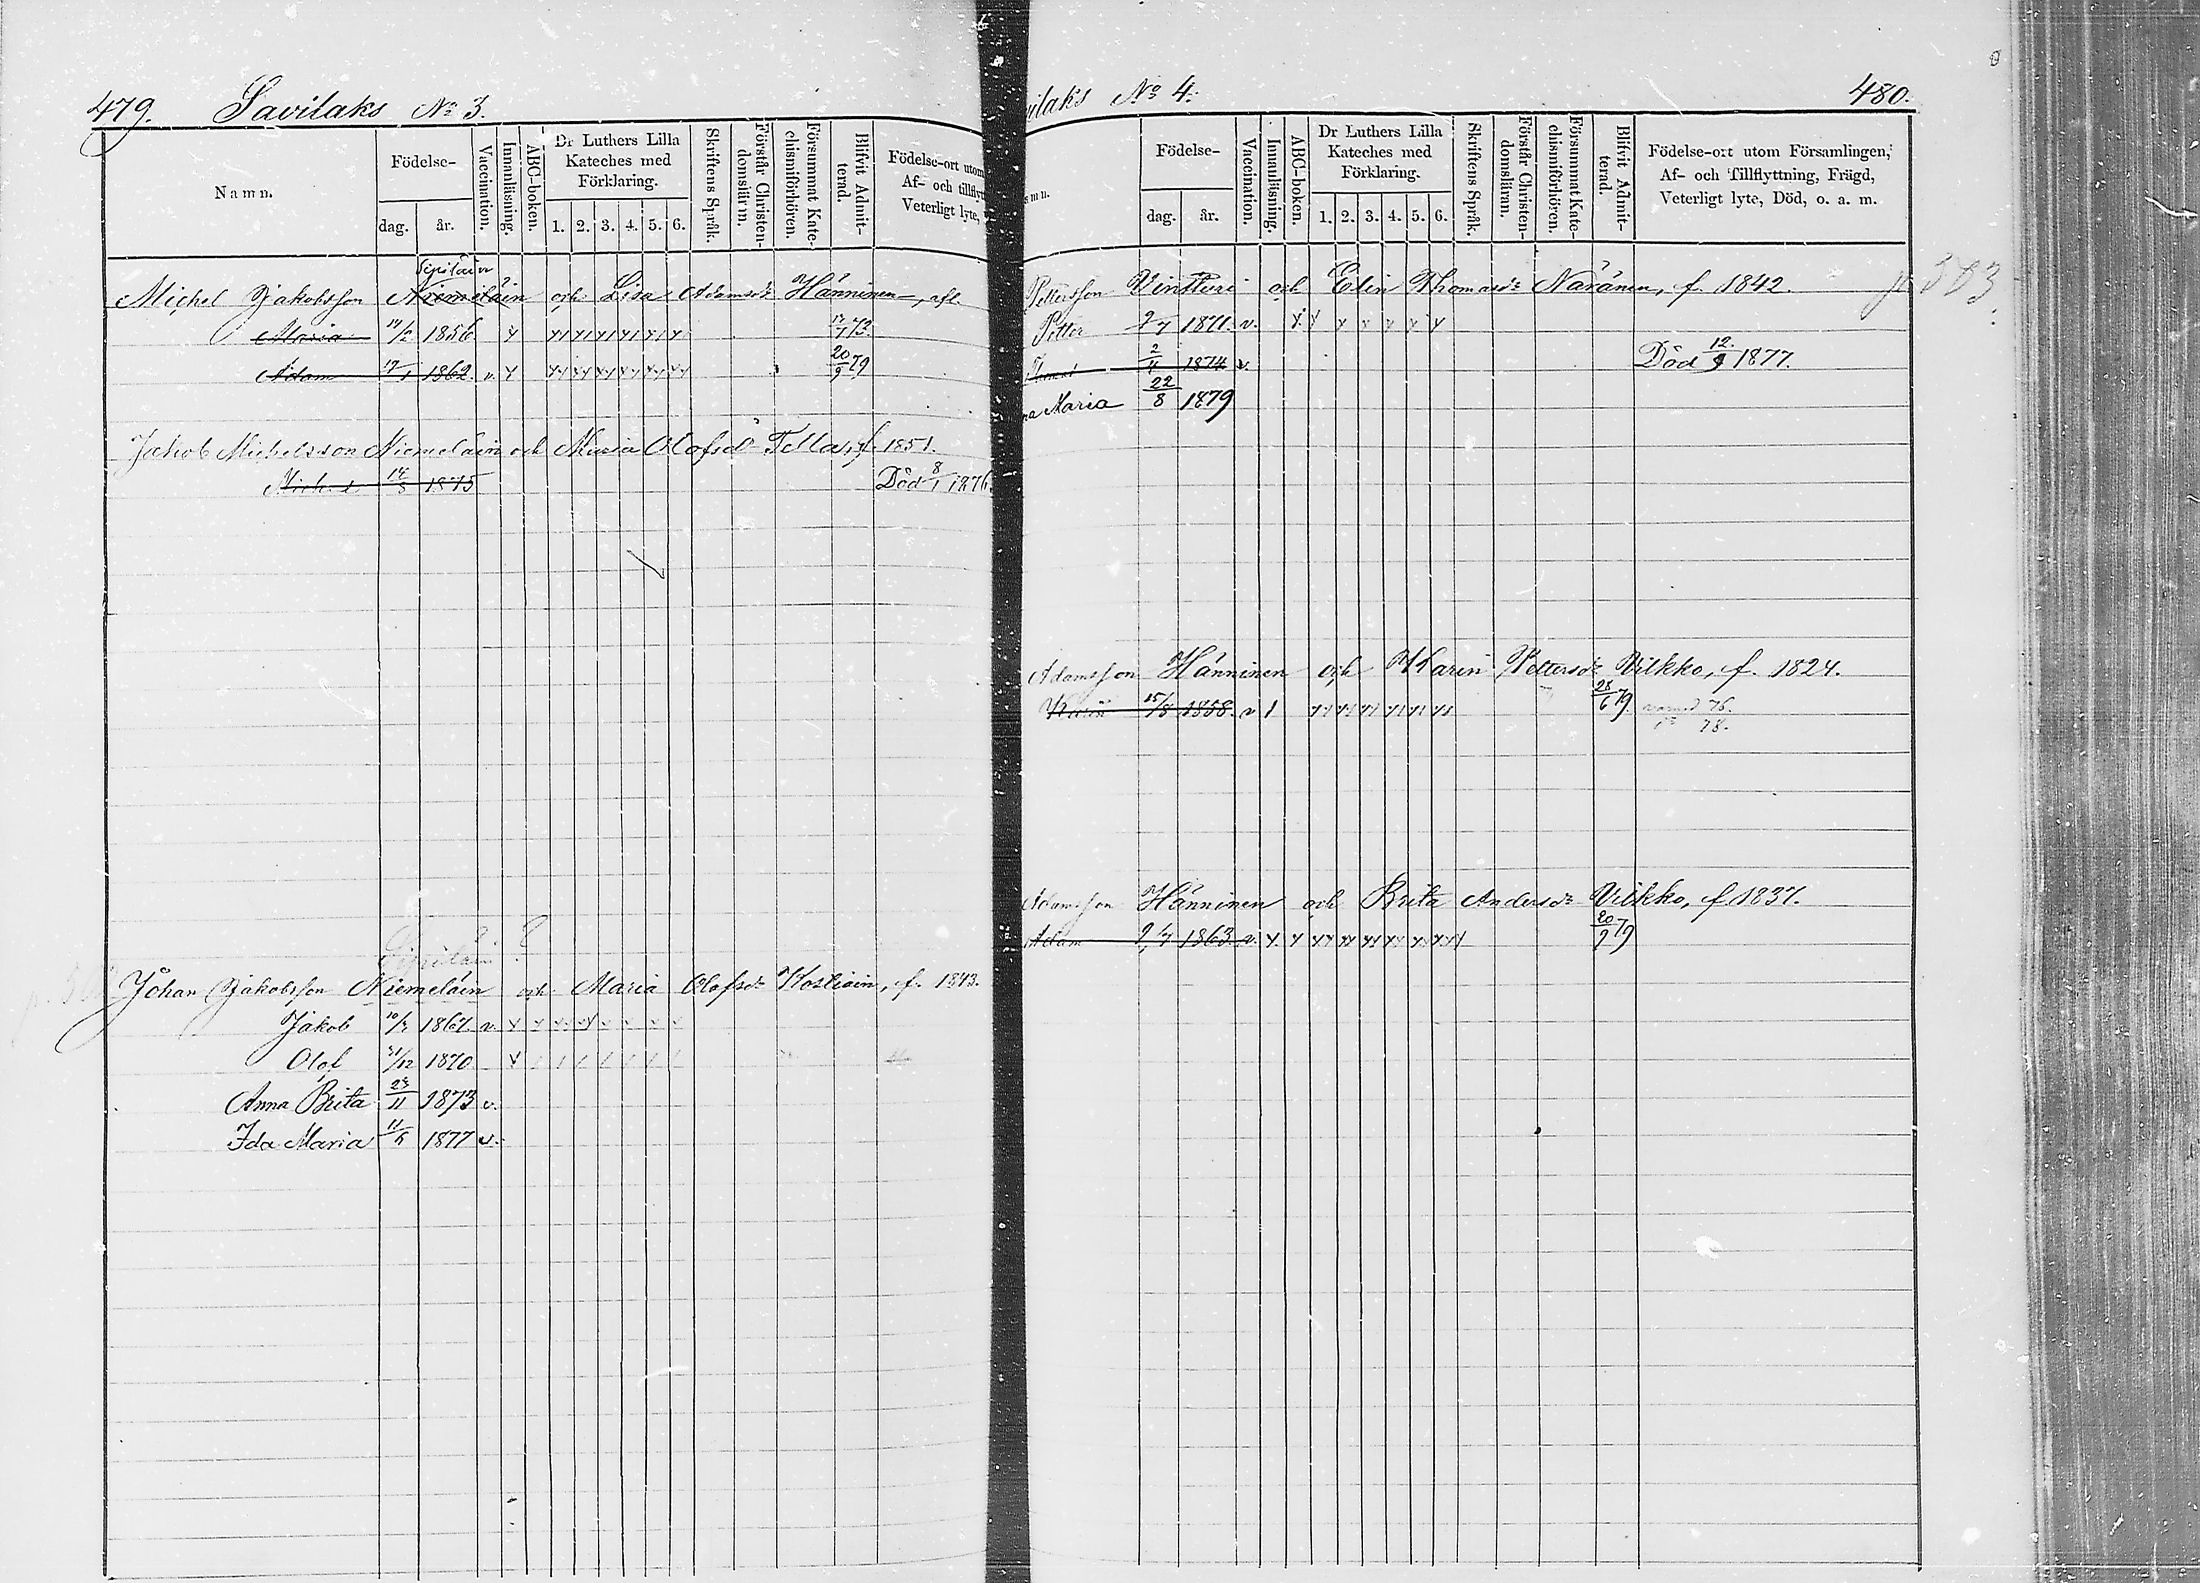 479. Savilaks No 3.
Namn.
Födelse-
dag. år.
Vaccination.
Innanläsning.
ABC-boken.
Dr Luthers Lilla
Kateches med
Förklaring.
1. 2. 3. 4. 5. 6.
Skriftens Språk.
Förstår Christen-
domslär n.
Försummat Kate-
chismiförhören.
Blifvit Admit-
terad.
Födelse-ort utom
Af- och tillflytt
Veterligt lyte,
Sipiläin
Michel Jakobsson Niemeläin och Lisa Adamsdr Hänninen
Maria 1856 73
Adam 17/1 1862. v. 20/9 79
Jakob Michelsson Niemeläin och Maria Olofsdr Tella, f. 1851.
Michel 1875 Död 8/1 1876.
Sipiläin
Johan Jakobsson Niemeläin och Maria Olofsdr Kostiain, f. 1843.
Jakob 1867. v.
Olof 31/12 1870
Anna Brita 23/11 1873 v.
Ida Maria 11/5 1877 v.
ilaks No 4. 480.
mn.
Födelse-
dag. år.
Vaccination.
Innanläsning.
ABC-boken.
Dr Luthers Lilla
Kateches med
Förklaring.
1. 2. 3. 4. 5. 6.
Skriftens Språk.
Förstår Christen-
domsläran.
Försummat Kate-
chismiförhören.
Blifvit Admit-
terad.
Födelse-ort utom Församlingen,
Af- och Tillflyttning, Frägd,
Veterligt lyte, Död, o. a. m.
Pettersson Vintturi och Elin Thomasdr Naränen, f. 1842. p. 383
Petter 9/7 1871. v.
2/4 1874 v. Död 12/9 1877.
na Maria 22/8 1879
Adamsson Hänninen och Karin Pettersdr Vilkko, f. 1824.
Karin 15/8 1858. v 28/6 79. 76.
78.
Adamsson Hänninen och Brita Andersdr Vilkko, f 1837.
Adam 9/7 1863 v. 20/9 79